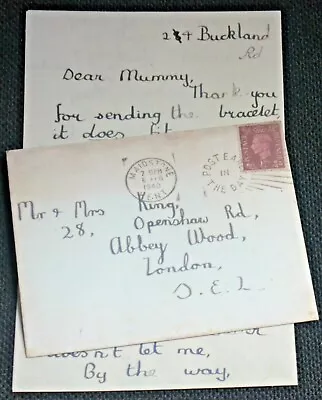 254 Buckland
Rd
Dear Mummy,
Thank you
for sending the bracelet,
it does fit
MAIDSTONE
KENT
POST EA
IN
THE DA
POSTAGE
Mr & Mrs King,
28, Openshaw Rd,
Abbey Wood,
London,
S.E.2.
doesn't let me,
By the way,